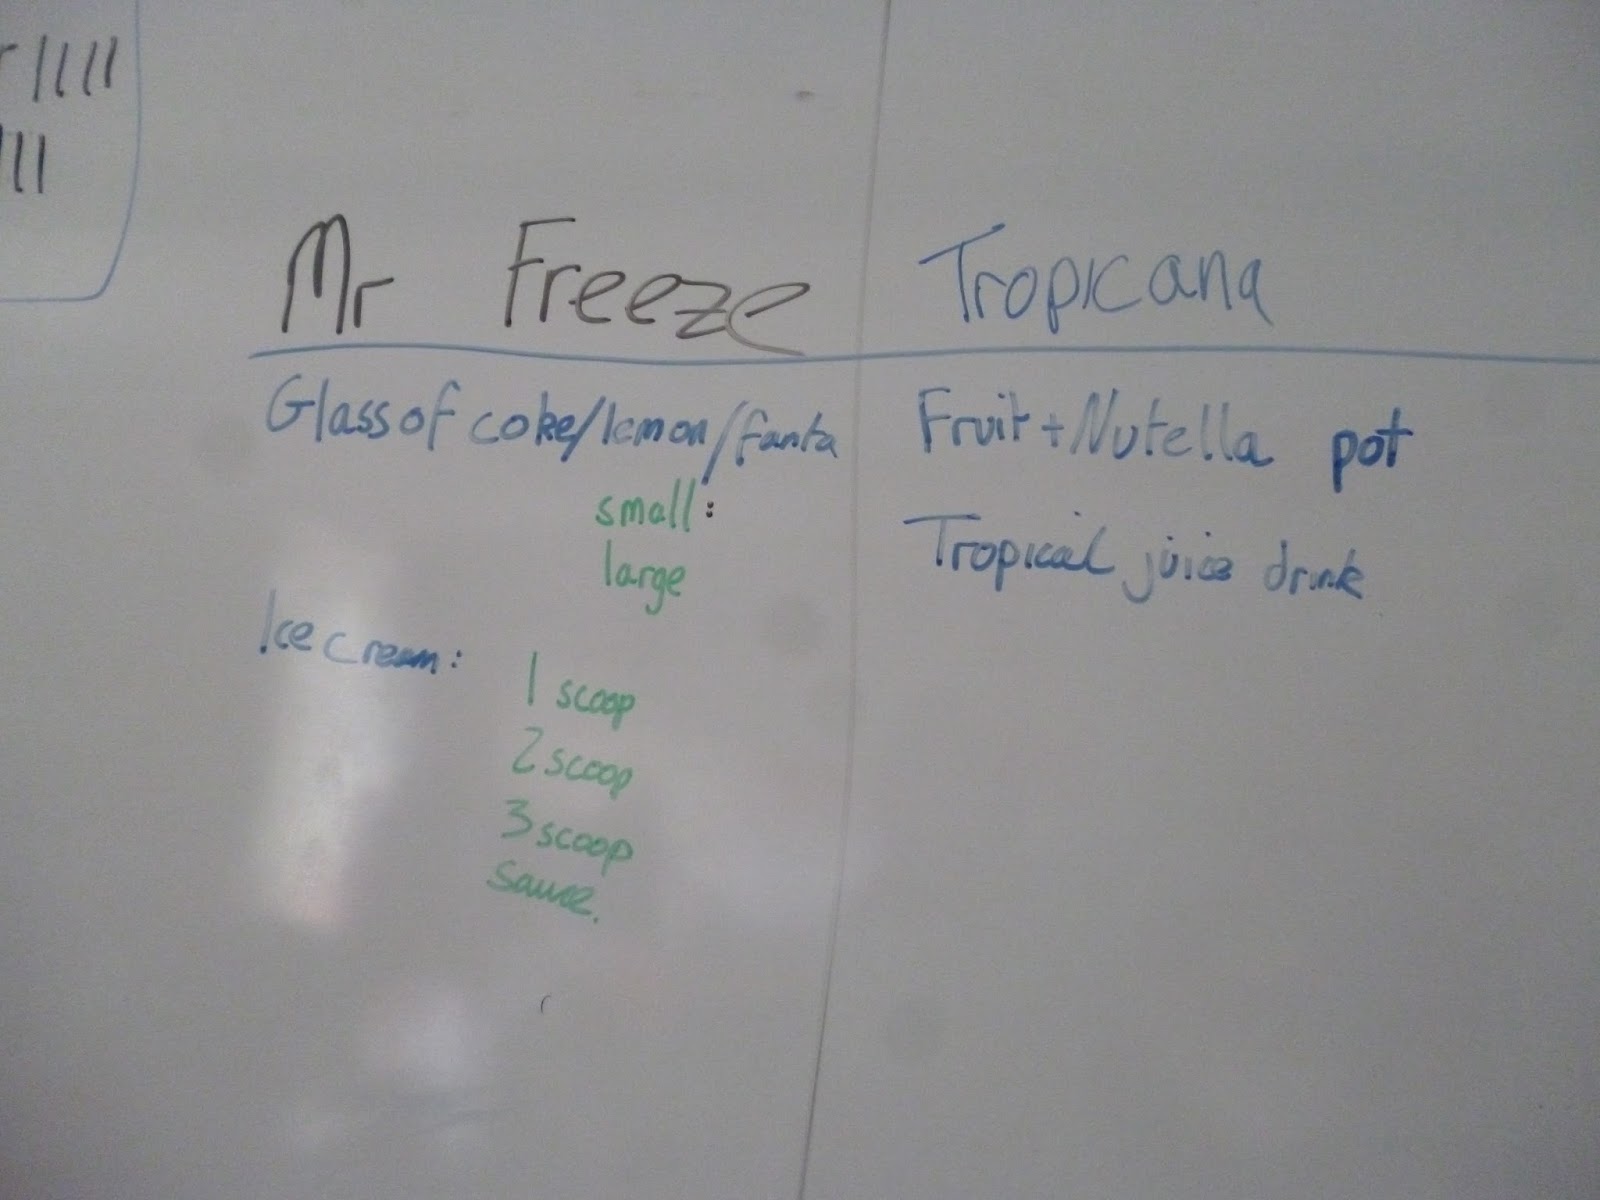 Mr Freeze
Glass of coke/lemon/fanta
small:
large
Ice cream:
1 scoop
2 scoop
3 scoop
Sauce.
Tropicana
Fruit + Nutella pot
Tropical juice drink